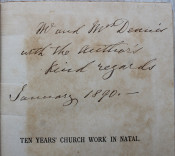 Mr and Mrs Deanir
with the author's
kind regards
January 1890. —
TEN YEARS' CHURCH WORK IN NATAL.